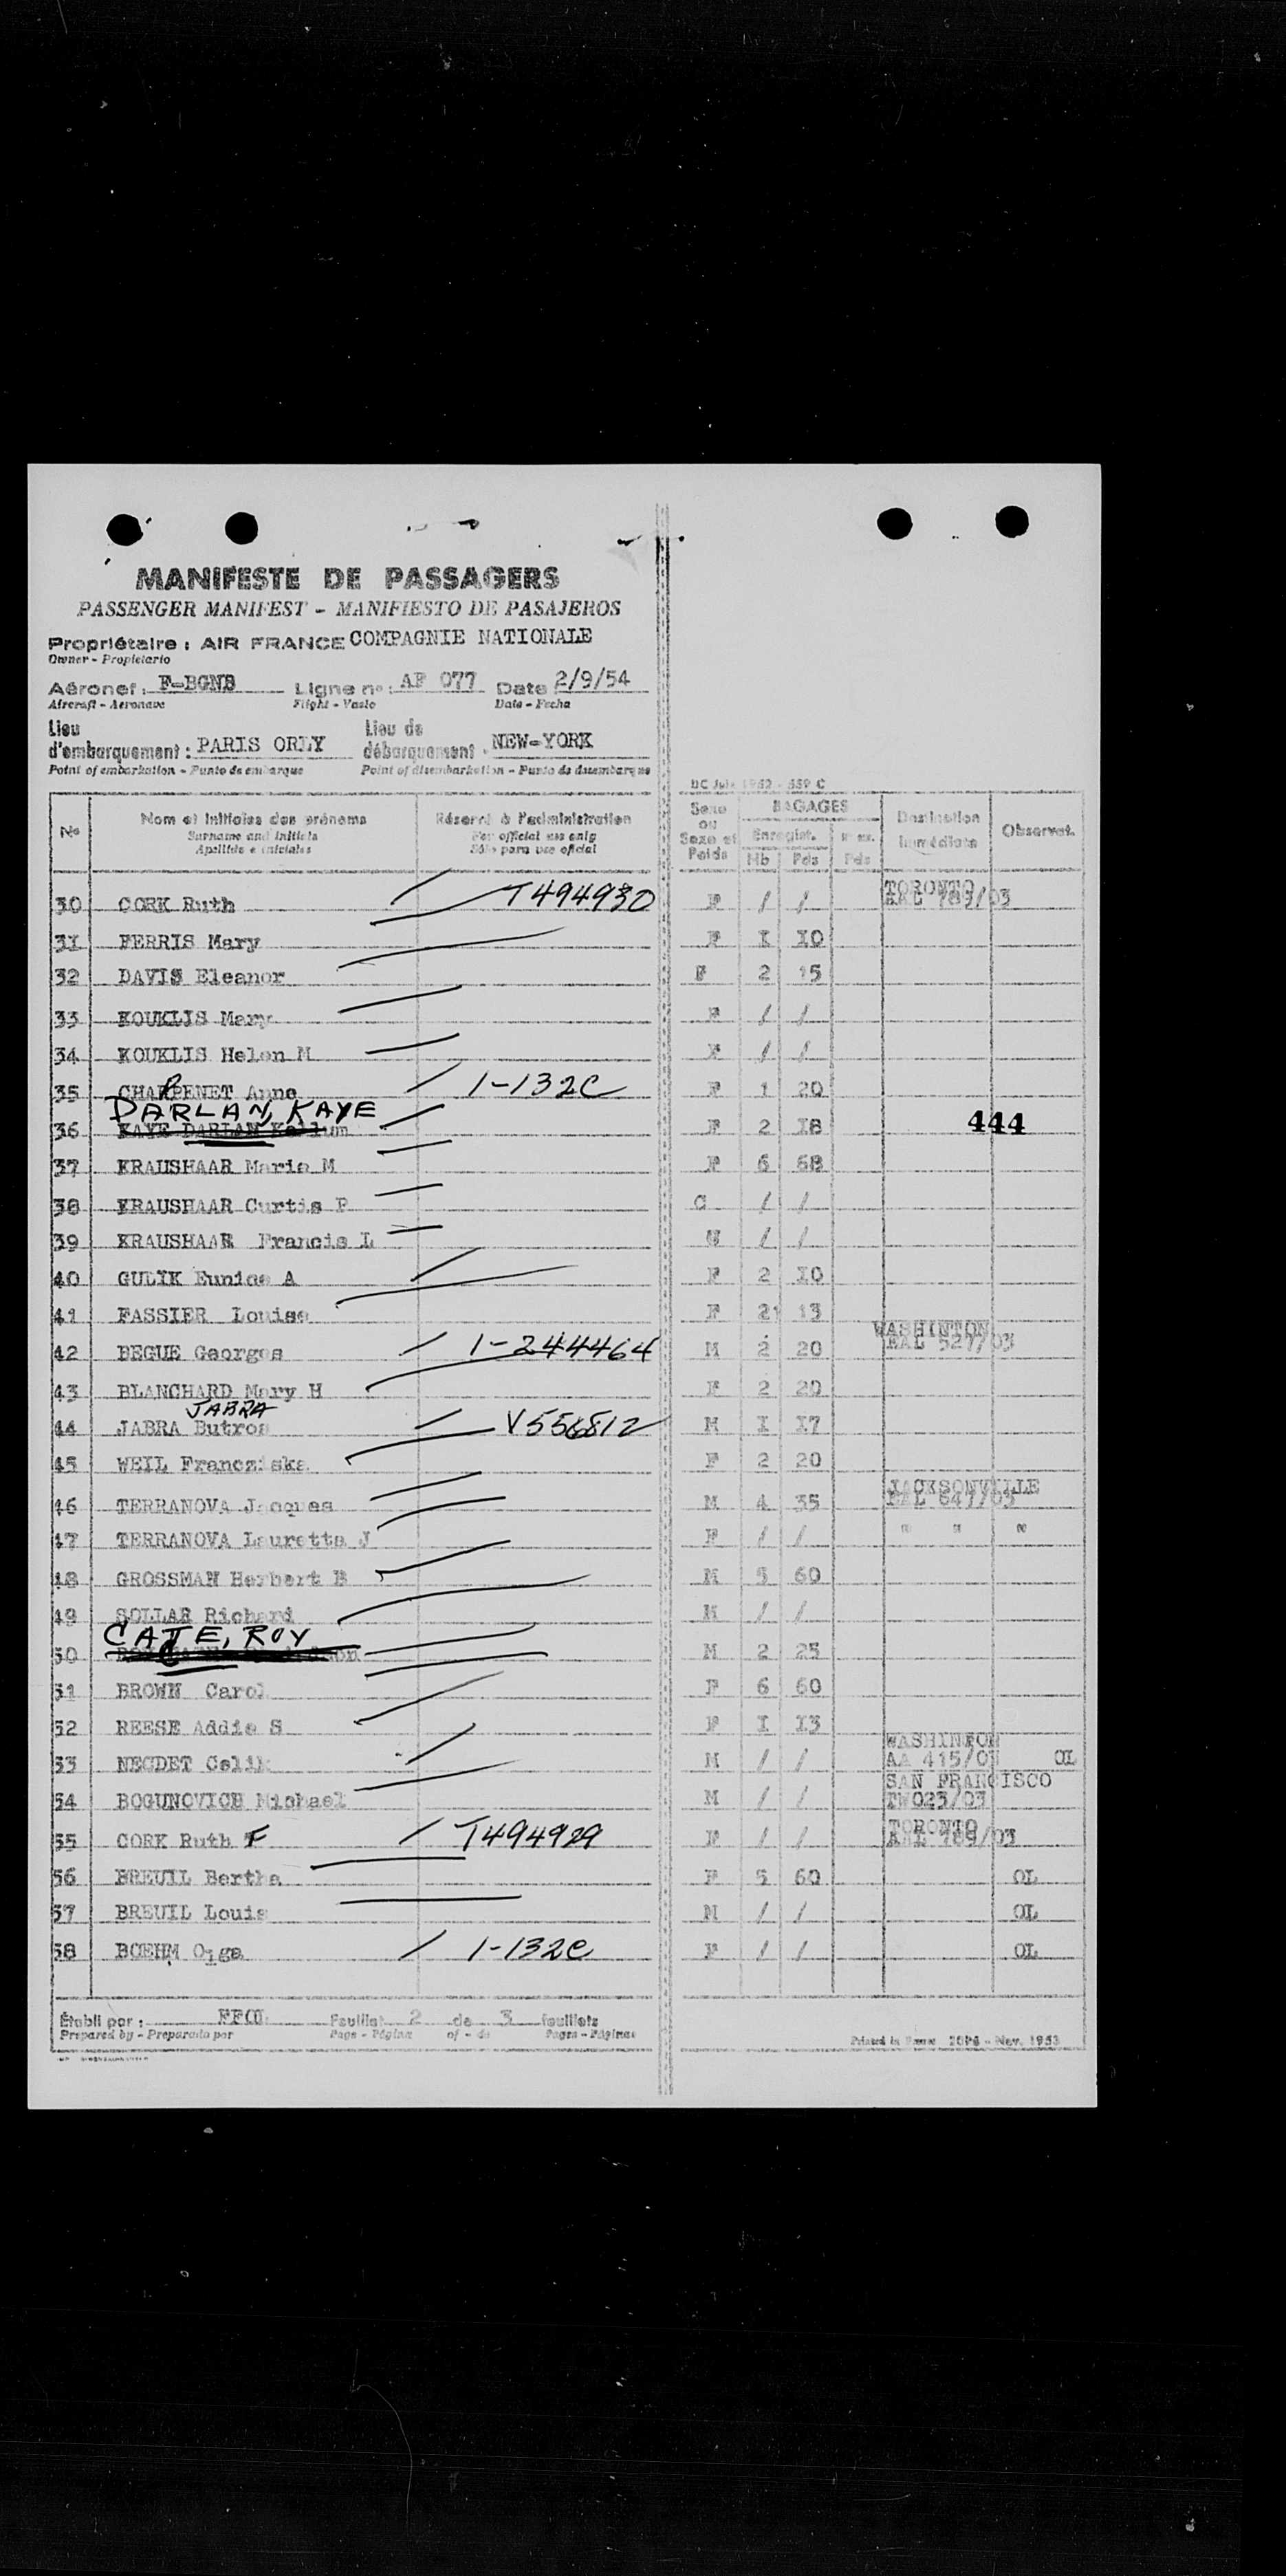 MANIFESTE DE PASSAGERS
PASSENGER MANIFEST - MANIFIESTO DE PASAJEROS
Propriétaire : AIR FRANCE COMPAGNIE NATIONALE
Owner - Propietario
Aéronef : F-BGNB Ligne no : AF 077 Date 2/9/54
Aircraft - Aeronave Flight - Vuelo Date - Fecha
Lieu d'embarquement : PARIS ORLY Lieu de débarquement : NEW-YORK
Point of embarkation - Punto de embarque Point of disembarkation - Punto de desembarque
No Nom et initiales des prénoms Réservé à l'administration Sexe ou Sexe et Poids BAGAGES Destination immédiate Observat.
Surname and initials For official use only Enregist.
Apellido e iniciales Sólo para uso oficial Nb Pds Pds
30 CORK Ruth / T494930 F / / TORONTO 789/03
31 FERRIS Mary F I I0
32 DAVIS Eleanor F 2 15
33 KOUKLIS Mary F / /
34 KOUKLIS Helen M F / /
35 CHARPENET Anne / 1-132C F 1 20
DARLAN, KAYE
36 KAYE DARLAN F 2 I8 444
37 KRAUSHAAR Marie M F 6 68
38 KRAUSHAAR Curtis P C / /
39 KRAUSHAAR Francis L / /
40 GULIK Eunice A F 2 I0
41 FASSIER Louise F 2 13
42 BEGUE Georges / 1-244464 M 2 20 WASHINTON EAL 527/03
43 BLANCHARD Mary H F 2 20
JABRA
44 JABRA Butros / V556812 M I I7
45 WEIL Franoziska F 2 20
46 TERRANOVA Jacques M 4 35 JACKSONVILLE EAL 647/03
47 TERRANOVA Lauretta J F / / " " "
48 GROSSMAN Herbert B M 5 60
49 SOLLAR Richard M / /
CATE, ROY
50 M 2 25
51 BROWN Carol F 6 60
52 REESE Addie S F I I3
53 NECDET Celik M / / WASHINTON AA 415/03 OL
54 BOGUNOVICH Michael M / / SAN FRANCISCO TW023/03
55 CORK Ruth F / T494929 F / / TORONTO 789/03
56 BREUIL Bertha F 5 60 OL
57 BREUIL Louis M / / OL
58 BOEHM Olga / 1-132C F / / OL
Établi par : Feuillet 2 de 3 feuillets
Prepared by - Preparado por Page - Página of - de Pages - Páginas
Nov. 1953